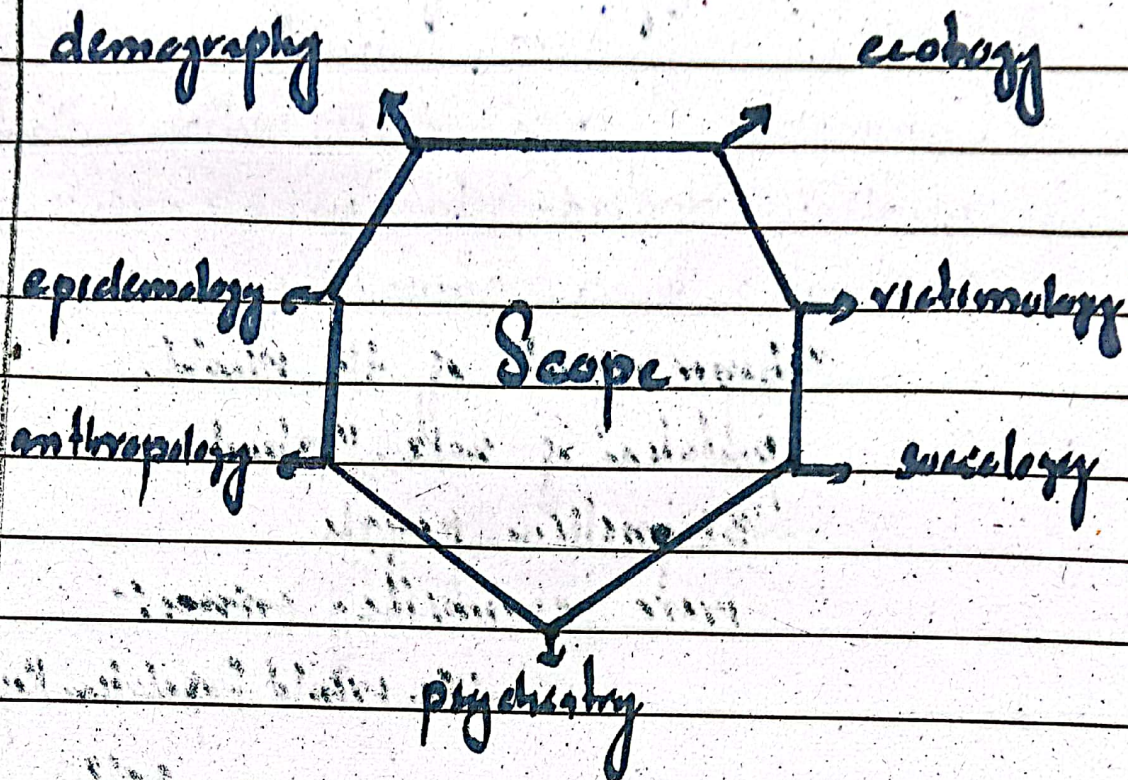 demography
ecology
epidemology
victimology
Scope
anthropology
sociology
psychiatry